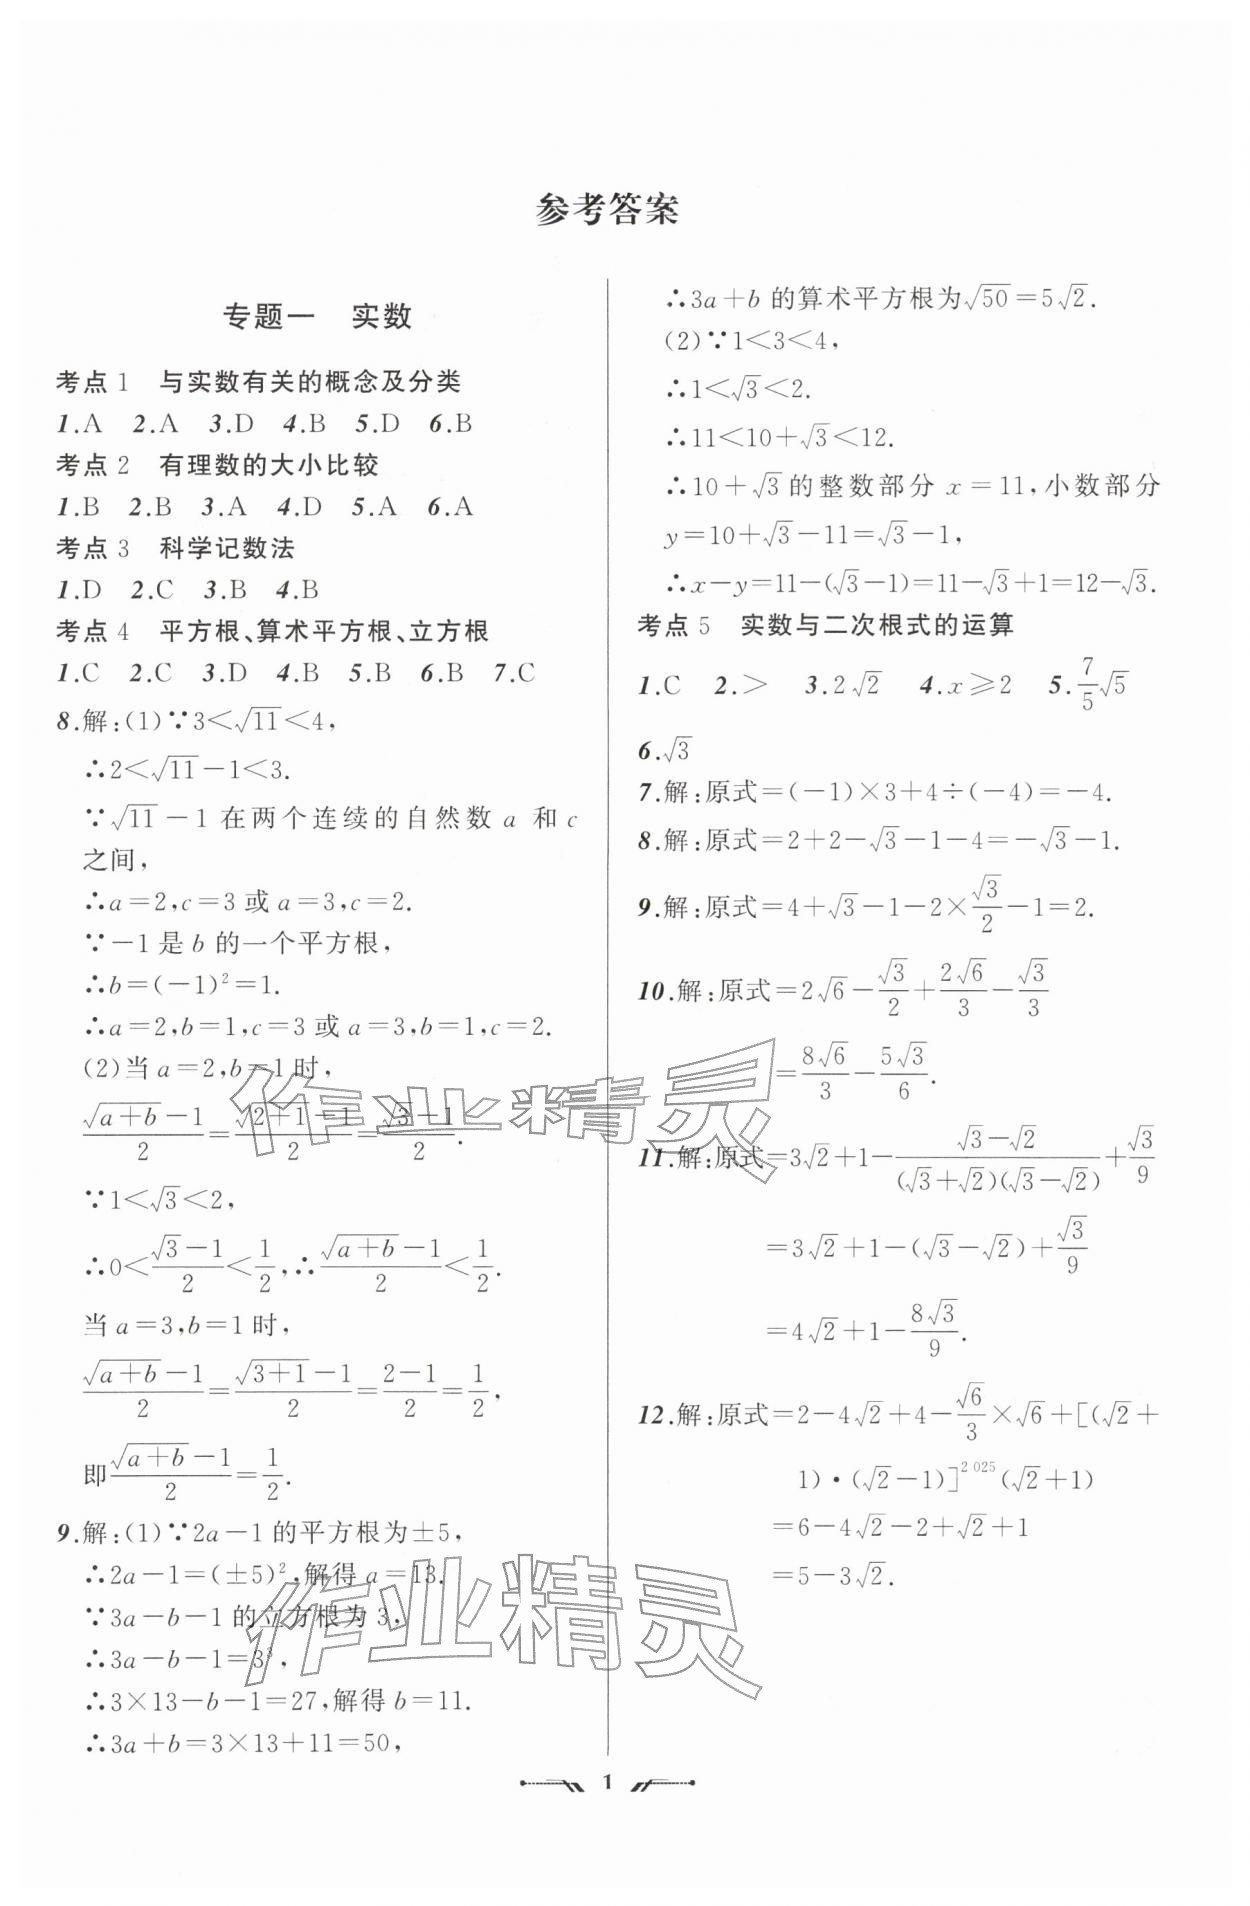 参考答案
专题一　实数
考点1　与实数有关的概念及分类
1.A　2.A　3.D　4.B　5.D　6.B
考点2　有理数的大小比较
1.B　2.B　3.A　4.D　5.A　6.A
考点3　科学记数法
1.D　2.C　3.B　4.B
考点4　平方根、算术平方根、立方根
1.C　2.C　3.D　4.B　5.B　6.B　7.C
8.解:(1)∵3<√11<4,
∴2<√11-1<3.
∵√11-1在两个连续的自然数a和c
之间,
∴a=2,c=3或a=3,c=2.
∵-1是b的一个平方根,
∴b=(-1)²=1.
∴a=2,b=1,c=3或a=3,b=1,c=2.
(2)当a=2,b=1时,
(√(a+b)-1)/2=(√(2+1)-1)/2=(√3-1)/2.
∵1<√3<2,
∴0<(√3-1)/2<1/2,∴(√(a+b)-1)/2<1/2.
当a=3,b=1时,
(√(a+b)-1)/2=(√(3+1)-1)/2=(2-1)/2=1/2,
即(√(a+b)-1)/2=1/2.
9.解:(1)∵2a-1的平方根为±5,
∴2a-1=(±5)²,解得a=13.
∵3a-b-1的立方根为3,
∴3a-b-1=3³,
∴3×13-b-1=27,解得b=11.
∴3a+b=3×13+11=50,
∴3a+b的算术平方根为√50=5√2.
(2)∵1<3<4,
∴1<√3<2.
∴11<10+√3<12.
∴10+√3的整数部分x=11,小数部分
y=10+√3-11=√3-1,
∴x-y=11-(√3-1)=11-√3+1=12-√3.
考点5　实数与二次根式的运算
1.C　2.>　3.2√2　4.x≥2　5.7/5√5
6.√3
7.解:原式=(-1)×3+4÷(-4)=-4.
8.解:原式=2+2-√3-1-4=-√3-1.
9.解:原式=4+√3-1-2×√3/2-1=2.
10.解:原式=2√6-√3/2+2√6/3-√3/3
=8√6/3-5√3/6.
11.解:原式=3√2+1-(√3-√2)/((√3+√2)(√3-√2))+√3/9
=3√2+1-(√3-√2)+√3/9
=4√2+1-8√3/9.
12.解:原式=2-4√2+4-√6/3×√6+[(√2+
1)·(√2-1)]^2 025(√2+1)
=6-4√2-2+√2+1
=5-3√2.
1
作业精灵
作业精灵